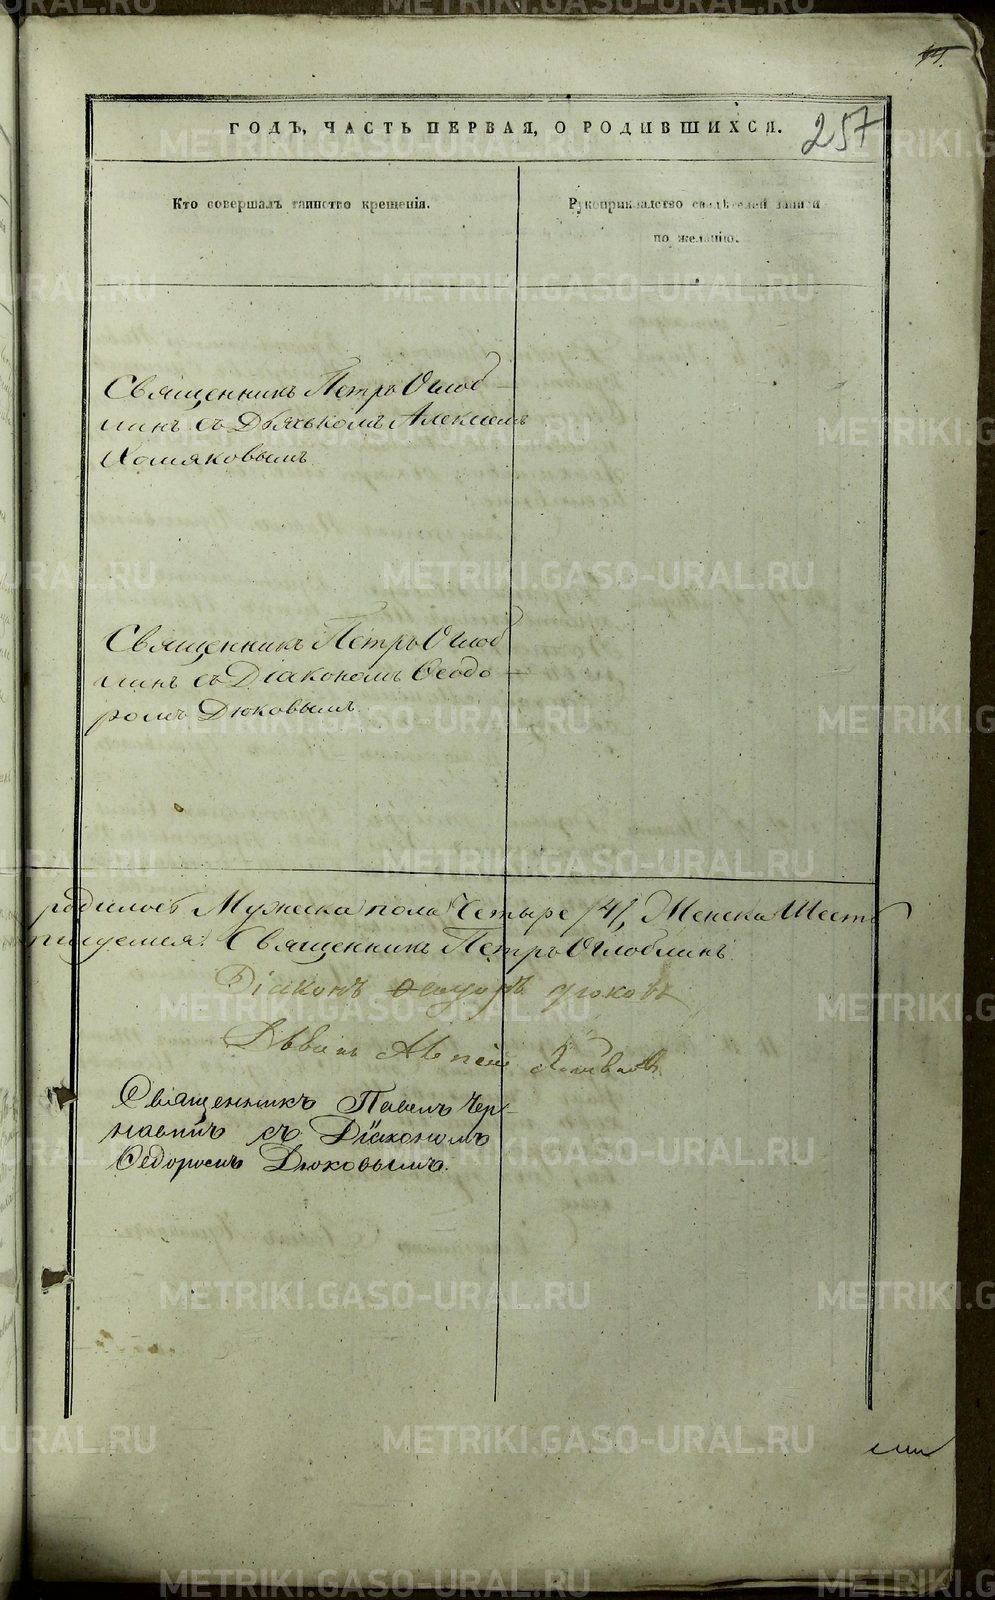 257
ГОДЪ, ЧАСТЬ ПЕРВАЯ, О РОДИВШИХСЯ.
Кто совершалъ таинство крещенія.
Рукоприкладство свидѣтелей записи
по желанію.
Священникъ Петръ Оглоб-
линъ съ Дьячькомъ Алексѣемъ
Хомяковымъ
Священникъ Петръ Оглоб
линъ съ Діакономъ Ѳеодо
ромъ Дюковымъ.
родилось Мужеска пола Четыре /4/, Женска Шесть
Священникъ Петръ Оглоблинъ.
Діаконъ Ѳеодоръ Дюковъ
Священникъ Павелъ Чер-
съ Діакономъ
Ѳедоромъ Дюковымъ.
METRIKI.GASO-URAL.RU